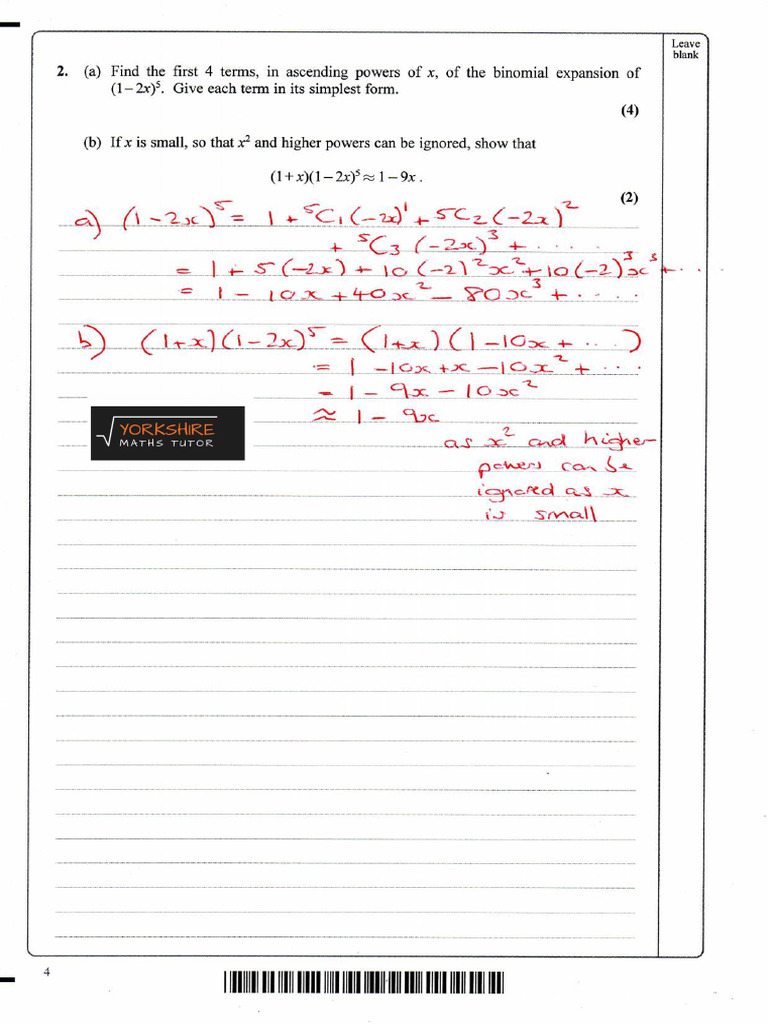 Leave
blank
2. (a) Find the first 4 terms, in ascending powers of x, of the binomial expansion of
(1 – 2x)⁵. Give each term in its simplest form.
(4)
(b) If x is small, so that x² and higher powers can be ignored, show that
(1 + x)(1 – 2x)⁵ ≈ 1 – 9x .
(2)
a) (1-2x)⁵ = 1 + ⁵C₁(-2x)¹ + 5C₂(-2x)²
+ ⁵C₃(-2x)³ + ....
= 1 + 5(-2x) + 10(-2)²x² + 10(-2)³x³ + ..
= 1 - 10x + 40x² - 80x³ + ....
b) (1+x)(1-2x)⁵ = (1+x)(1-10x + ...)
= 1 -10x +x -10x² + ...
= 1 - 9x - 10x²
≈ 1 - 9x
as x² and higher
powers can be
ignored as x
is small
YORKSHIRE
MATHS TUTOR
4